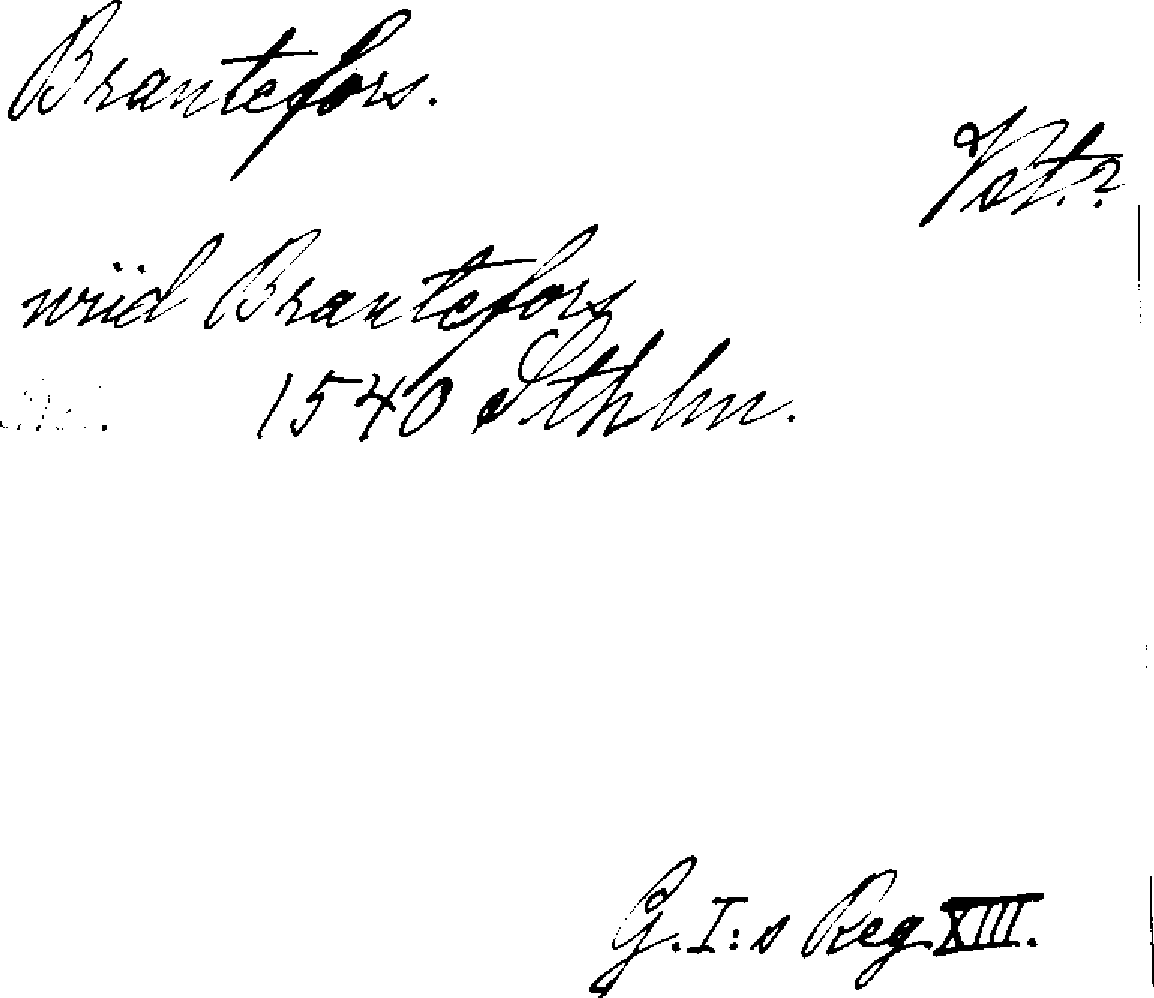 Brantefors.
Vst.?
wiid Brantefors
1540 Sthlm.
G.I:s Reg. XIII.